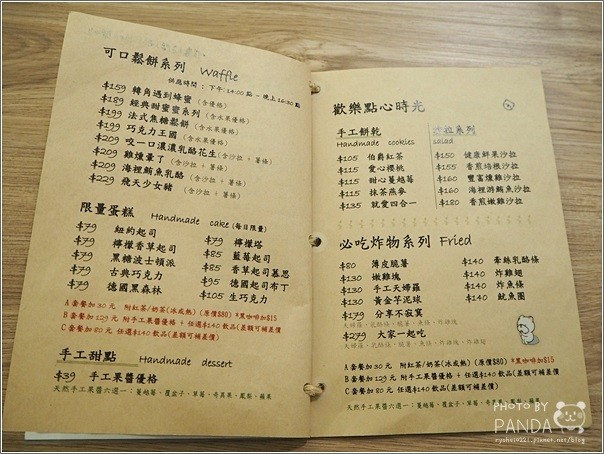 可口鬆餅系列 Waffle
供應時間：下午:14:00點 ~ 晚上16:30點
$159 轉角遇到蜂蜜 (含優格)
$189 經典甜蜜蜜系列 (含水果優格)
$199 法式焦糖鬆餅 (含水果優格)
$199 巧克力王國 (含水果優格)
$209 咬一口濃濃乳酪花生 (含沙拉 + 薯條)
$209 雞燻暈了 (含沙拉 + 薯條)
$209 海裡鮪魚乳酪 (含沙拉 + 薯條)
$229 飛天少女豬 (含沙拉 + 薯條)
限量蛋糕 Handmade cake (每日限量)
$79 紐約起司
$79 檸檬香草起司
$79 黑糖波士頓派
$79 古典巧克力
$79 德國黑森林
$79 檸檬塔
$85 藍莓起司
$85 香草起司慕思
$95 德國起司布丁
$105 生巧克力
A 套餐加 30 元 附紅茶/奶茶(冰或熱) (原價$80) *黑咖啡加$15
B 套餐加 129 元 附手工果醬優格 + 任選$140 飲品(差額可補差價)
C 套餐加 80 元 任選$140 飲品(差額可補差價)
手工甜點 Handmade dessert
$39 手工果醬優格
天然手工果醬六選一：蔓越莓、覆盆子、草莓、奇異果、鳳梨、蘋果
歡樂點心時光
手工餅乾
Handmade cookies
$105 伯爵紅茶
$115 愛心櫻桃
$115 甜心蔓越莓
$115 抹茶燕麥
$135 就愛四合一
沙拉系列
salad
$150 健康鮮果沙拉
$155 香煎培根沙拉
$160 豐富燻雞沙拉
$160 海裡游鮪魚沙拉
$180 香煎嫩雞沙拉
必吃炸物系列 Fried
$80 薄皮脆薯
$130 嫩雞塊
$130 手工天婦羅
$130 黃金芊泥球
$179 分享不寂寞
$279 大家一起吃
$140 牽絲乳酪條
$140 炸雞翅
$140 炸魚條
$140 魷魚圈
A 套餐加 30 元 附紅茶/奶茶(冰或熱) (原價$80) *黑咖啡加$15
B 套餐加 129 元 附手工果醬優格 + 任選$140 飲品(差額可補差價)
C 套餐加 80 元 任選$140 飲品(差額可補差價)
天然手工果醬六選一：蔓越莓、覆盆子、草莓、奇異果、鳳梨、蘋果
PHOTO BY
PANDA